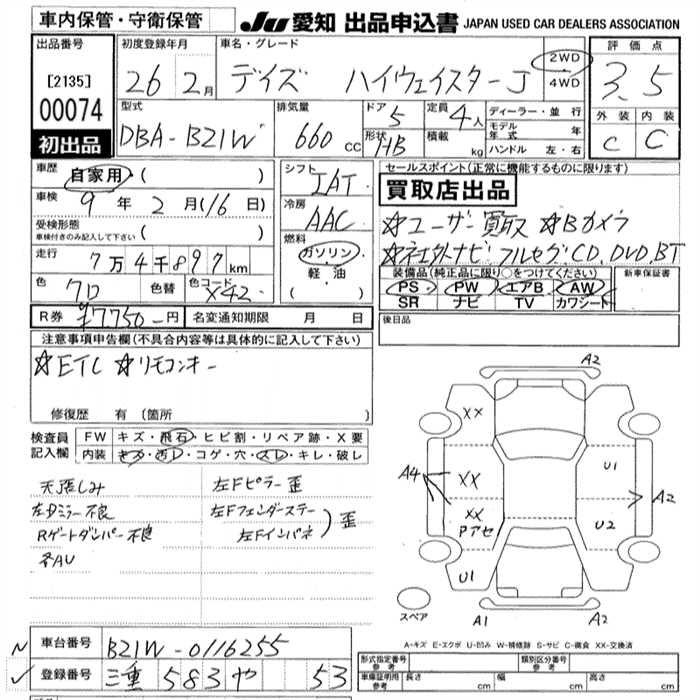 車内保管・守衛保管
JU 愛知 出品申込書 JAPAN USED CAR DEALERS ASSOCIATION
出品番号
[2135]
00074
初出品
初度登録年月
26 2月
車名・グレード
デイズ ハイウェイスターJ
2WD
4WD
評価点
3.5
外装 内装
C C
型式
DBA-B21W
排気量
660 CC
ドア
5
形状
HB
定員
4人
積載
kg
ディーラー・並行
モデル年式 年
ハンドル 左・右
車歴
自家用 ( )
車検
9年2月(16日)
受検形態
車検付きのみ記入して下さい ( )
走行
7万4千897km
色
クロ
色替
色コード
X42
シフト
IAT
冷房
AAC
燃料
ガソリン
軽・油
( )
セールスポイント(正常に機能するものに限ります)
買取店出品
☆ユーザー買取 ☆Bカメラ
☆ネエ外ナビ フルセグCD,DVD,BT
装備品(純正品に限り○をつけてください)
PS PW エアB AW
SR ナビ TV カワシート
新車保証書
後日品
R券 ¥7750-円
名変通知期限 月 日
注意事項申告欄(不具合内容等は具体的に記入して下さい)
☆ETC ☆リモコンキー
修復歴 有(箇所 )
検査員記入欄
FW キズ・飛石・ヒビ割・リペア跡・X要
内装 キズ・汚レ・コゲ・穴・スレ・キレ・破レ
天張しみ
左Dミラー不良
Rゲートダンパー不良
冬AU
左Fピラー歪
左Fフェンダーステー
左Fインパネ
)歪
A2
XX
A4
XX
XX
Pアセ
U1
U1
A2
U2
スペア
A1
A2
A-キズ E-エクボ U-凹み W-補修跡 S-サビ C-腐食 XX-交換済
N
車台番号
B21W-0116255
✓
登録番号
三重 583 や 53
形式指定番号
参考
類別区分番号
参考
車庫証明用
参考
長さ cm
幅 cm
高さ cm